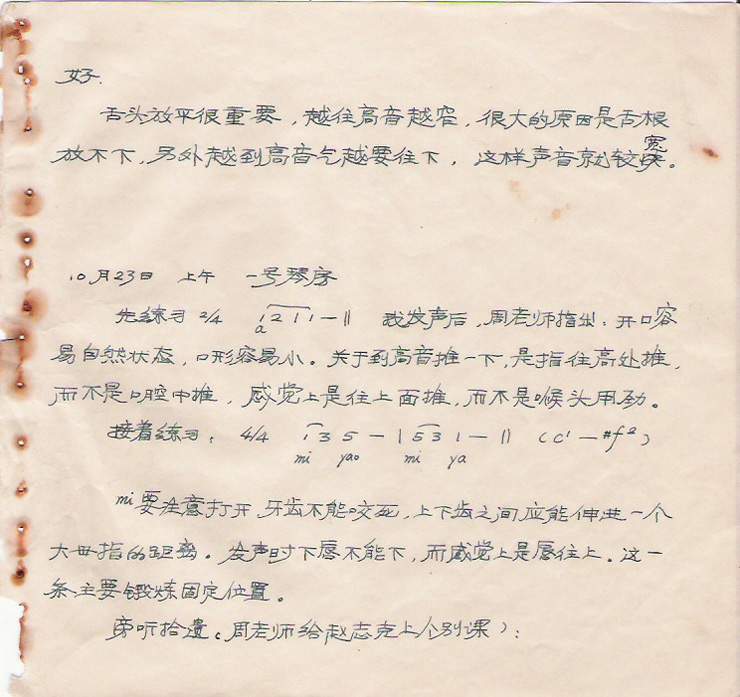 好.
舌头放平很重要，越往高音越窄，很大的原因是舌根
放不下，另外越到高音气越要往下，这样声音就较宽。
10月23日 上午 一号琴房
先练习 2/4 1 2 1 1 — || 我发声后，周老师指出：开口容
a
易自然状态，口形容易小。关于到高音推一下，是指往高处推，
而不是口腔中推，感觉上是往上面推，而不是喉头用劲。
接着练习： 4/4 1 3 5 — | 5 3 1 — || （c¹ — #f²）
mi yao mi ya
mi要注意打开，牙齿不能咬死，上下齿之间应能伸进一个
大毋指的距离。发声时下唇不能下，而感觉上是唇往上。这一
条主要锻炼固定位置。
旁听拾遗（周老师给赵志克上个别课）：